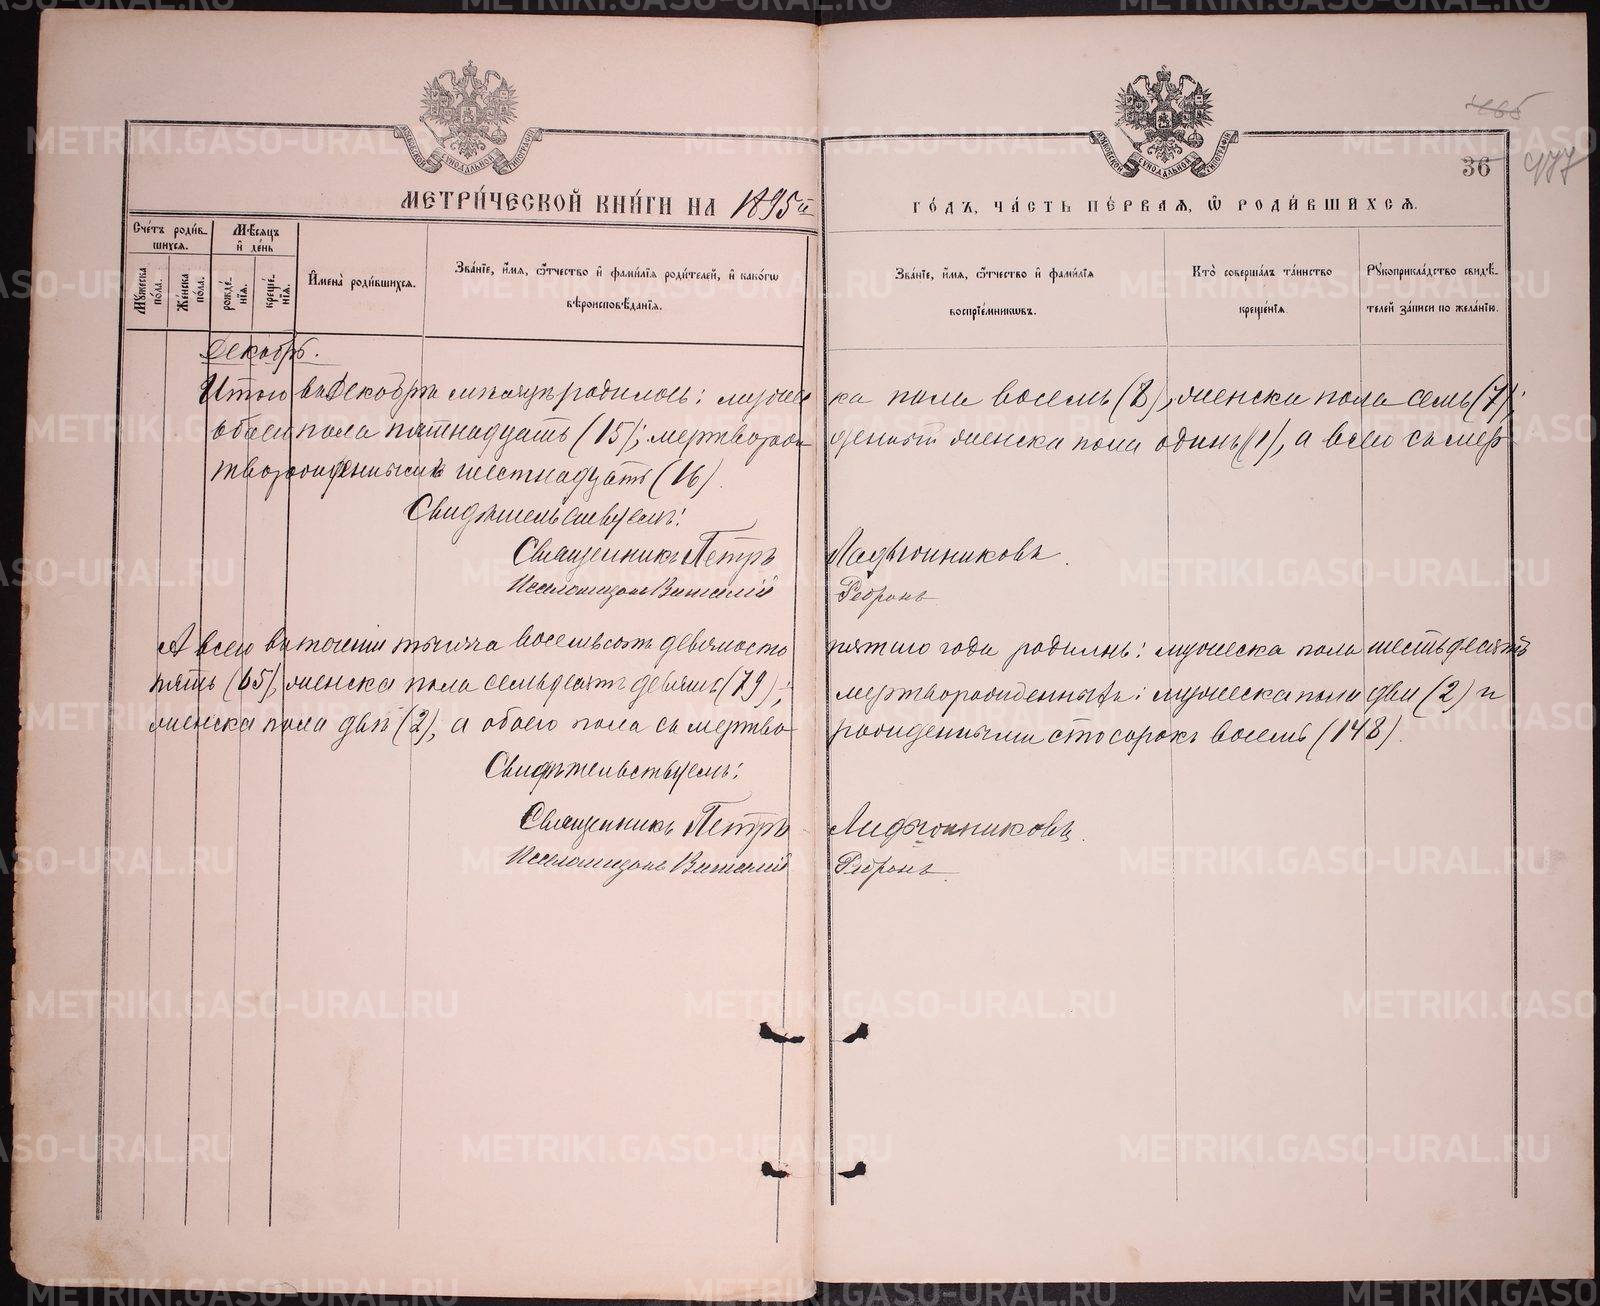 МЕТРИ́ЧЕСКОЙ КНИ́ГИ НА 1895й
ГО́ДЪ, ЧА́СТЬ ПЕ́РВАЯ, Ѿ РОДИ́ВШИХСЯ.
36
477
Сче́тъ роди́вшихся.
Мѣсяцъ и҆ де́нь
Мꙋ́жеска по́ла.
Же́нска по́ла.
рожде́нїя.
креще́нїя.
И҆мена̀ роди́вшихся.
Зва́нїе, и҆́мя, ѻ҆́тчество и҆ фами́лїя роди́телей, и҆ како́гѡ
вѣроисповѣ́данїя.
Зва́нїе, и҆́мя, ѻ҆́тчество и҆ фами́лїя
воспрїе́мникѡвъ.
Кто̀ соверша́лъ та́инство
креще́нїя
Рꙋкоприкла́дство свидѣ́телей за́писи по жела́нїю.
Декабрь.
Итого въ Декабрѣ мѣсяцѣ родилось: мужеска пола восемь (8), женска пола семь (7);
обоего пола пятнадцать (15); мертворожденныхъ женска пола одинъ (1), а всего съ мертворожденными шестнадцать (16).
Свидѣтельствуемъ:
Священникъ Петръ Ладыжниковъ.
Псаломщикъ Виталий
А всего въ течении тысяча восемьсотъ девяносто пятаго года родилось: мужеска пола шестьдесятъ
пять (65), женска пола семьдесятъ девять (79); мертворожденныхъ: мужеска пола два (2) и
женска пола двѣ (2), а обоего пола съ мертворожденными сто сорокъ восемь (148).
Свидѣтельствуемъ:
Священникъ Петръ Ладыжниковъ.
Псаломщикъ Виталий
METRIKI.GASO-URAL.RU